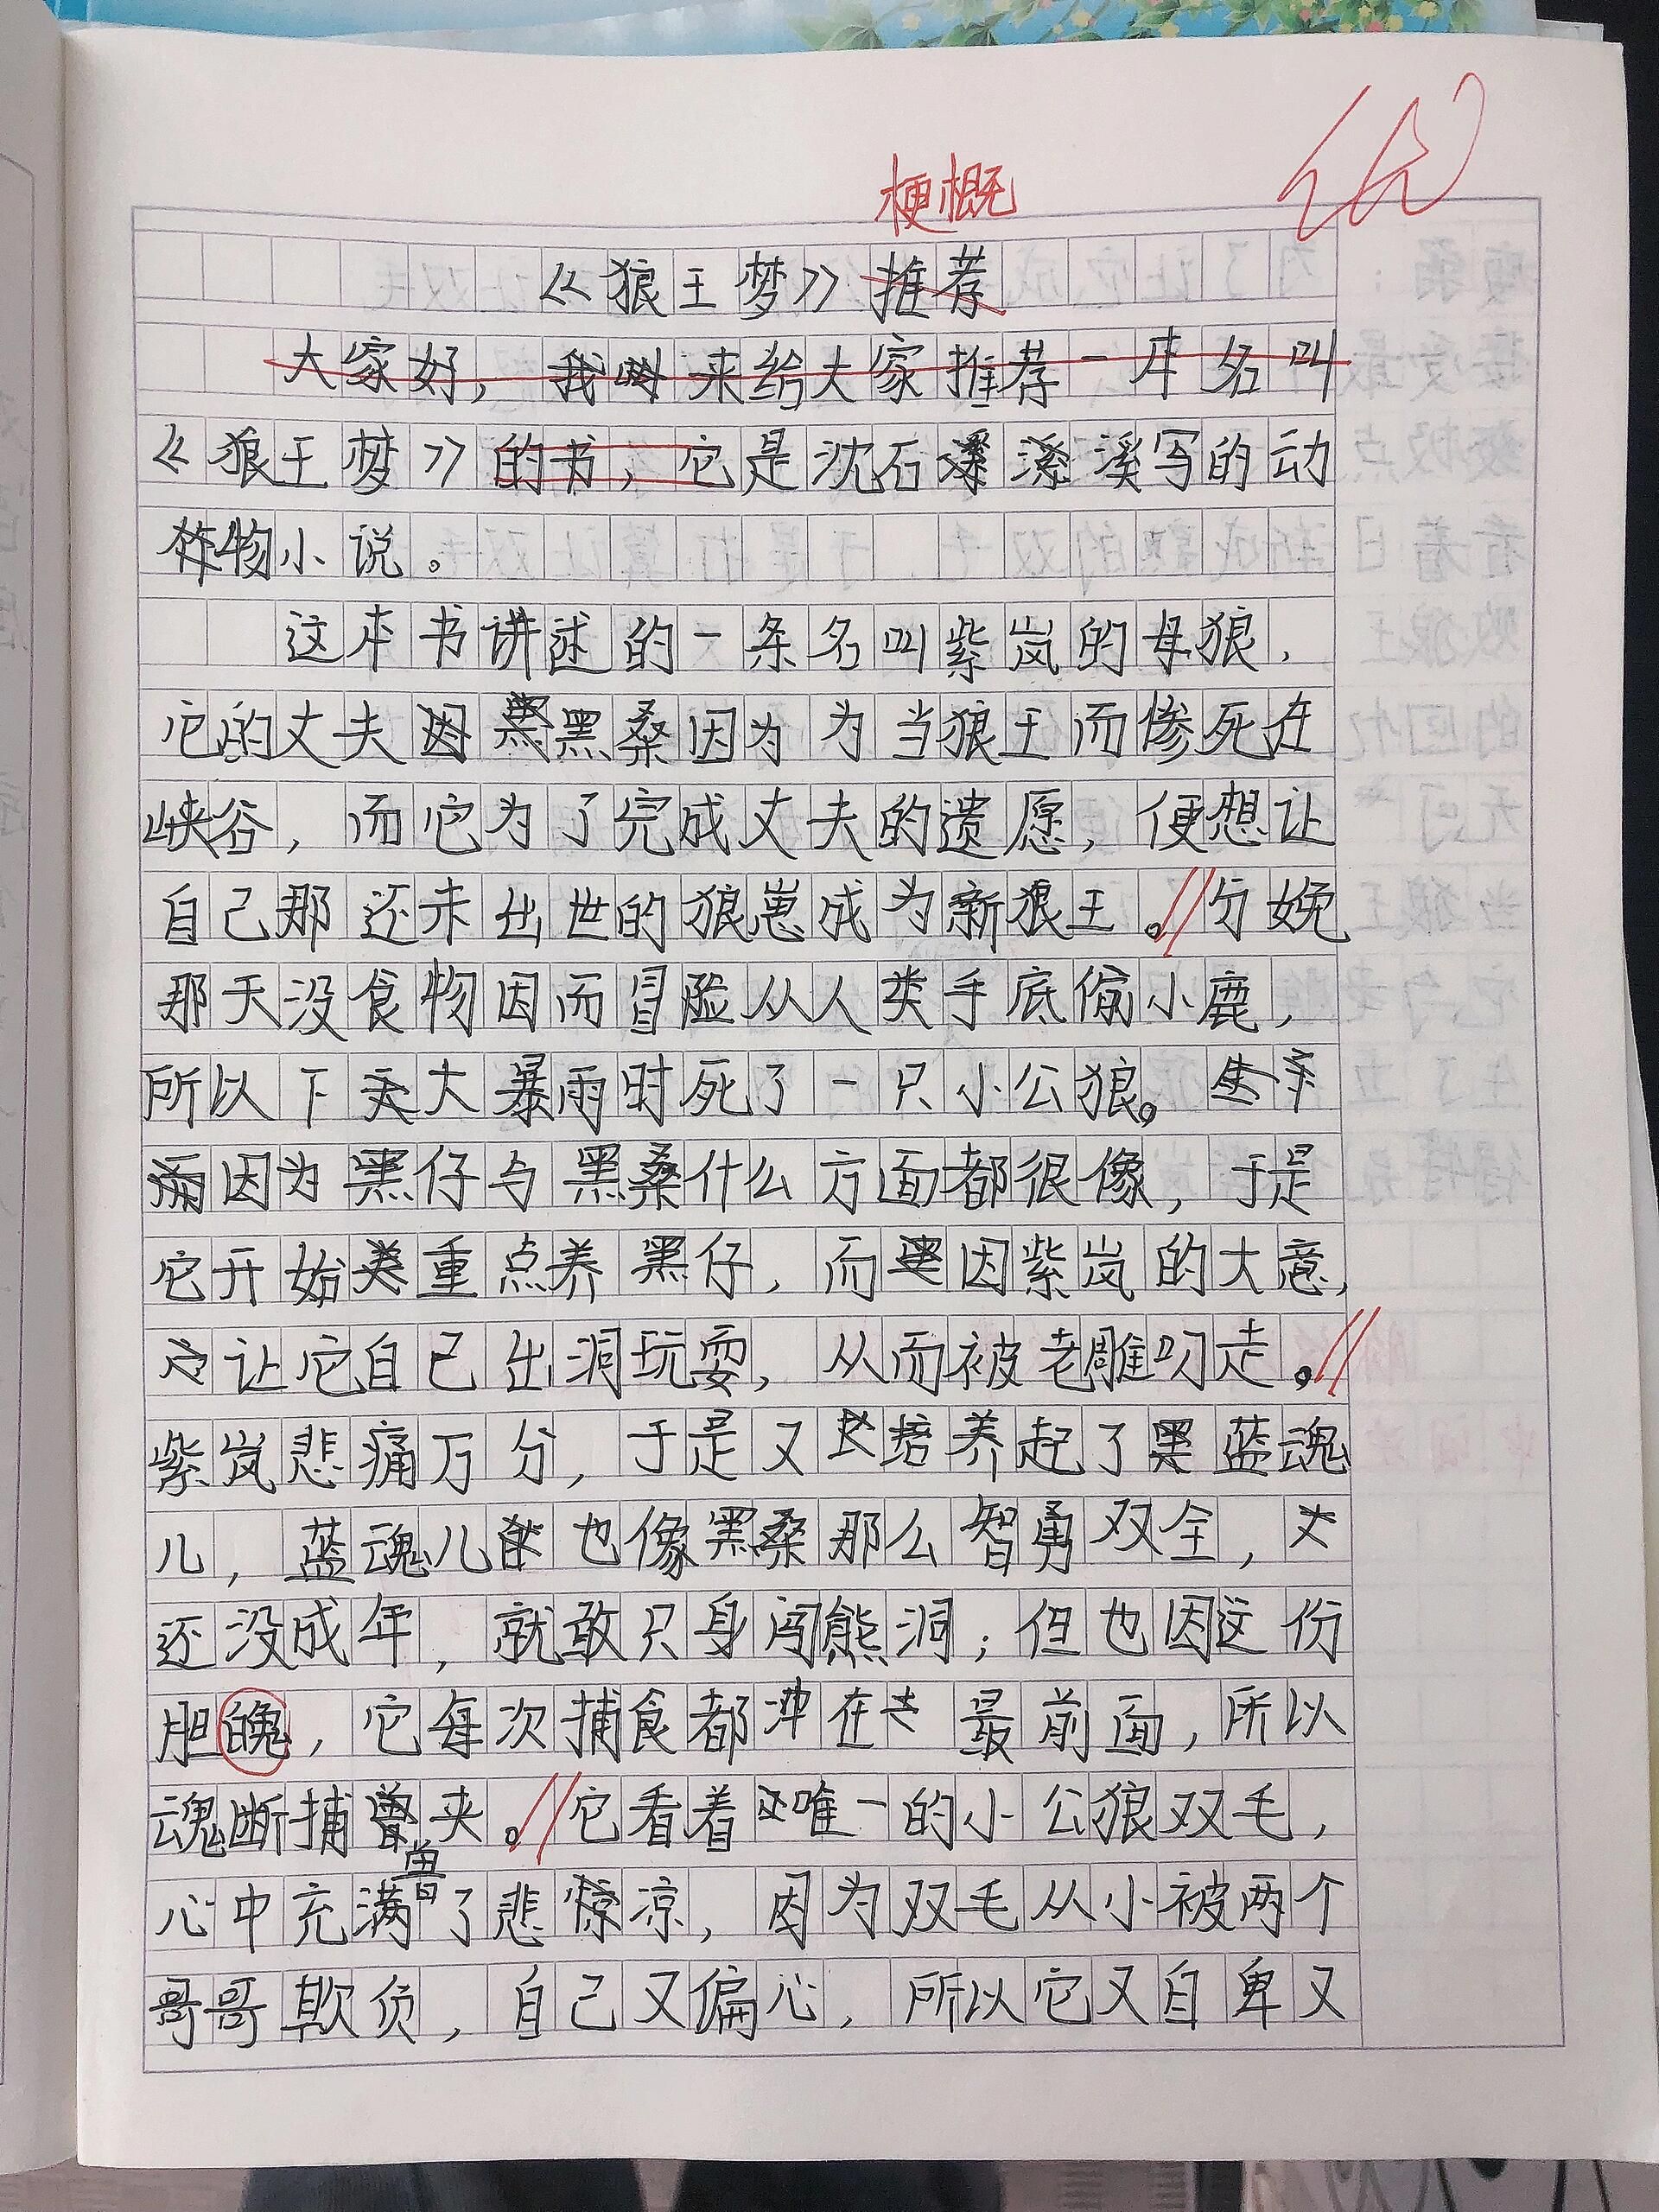 梗概
《狼王梦》推荐
大家好，我来给大家推荐一本名叫
《狼王梦》的书，它是沈石溪写的动
物小说。
这本书讲述的一条名叫紫岚的母狼，
它的丈夫黑桑因为为当狼王而惨死在
峡谷，而它为了完成丈夫的遗愿，便想让
自己那还未出世的狼崽成为新狼王。分娩
那天没食物因而冒险从人类手底偷小鹿，
所以下大暴雨时死了一只小公狼。
因为黑仔与黑桑什么方面都很像，于是
它开始重点养黑仔，而因紫岚的大意，
让它自己出洞玩耍，从而被老雕叼走。
紫岚悲痛万分，于是又培养起了蓝魂
儿，蓝魂儿也像黑桑那么智勇双全，
还没成年，就敢只身闯熊洞；但也因这份
胆魄，它每次捕食都冲在最前面，所以
魂断捕兽夹。它看着唯一的小公狼双毛，
心中充满了悲凉，因为双毛从小被两个
哥哥欺负，自己又偏心，所以它又自卑又